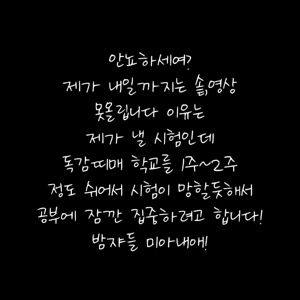 안뇨하세여?
제가 내일까지는 숇영상
못올립니다 이유는
제가 낼 시험인데
독감때매 학교를 1주~2주
정도 쉬어서 시험이 망할듯해서
공부에 잠깐 집중하려고 합니다!
밤쟈들 미아내애!